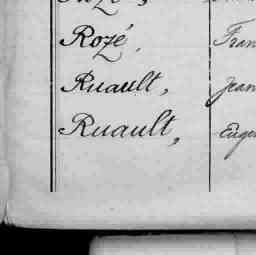 Rozé, Fran
Ruault, Jean
Ruault, Eugè